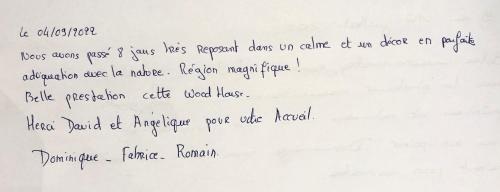 Le 04/09/2022
Nous avons passé 8 jours très reposant dans un calme et un décor en parfaite
adéquation avec la nature. Région magnifique !
Belle prestation cette Wood House.
Merci David et Angélique pour votre Accueil.
Dominique - Fabrice - Romain.